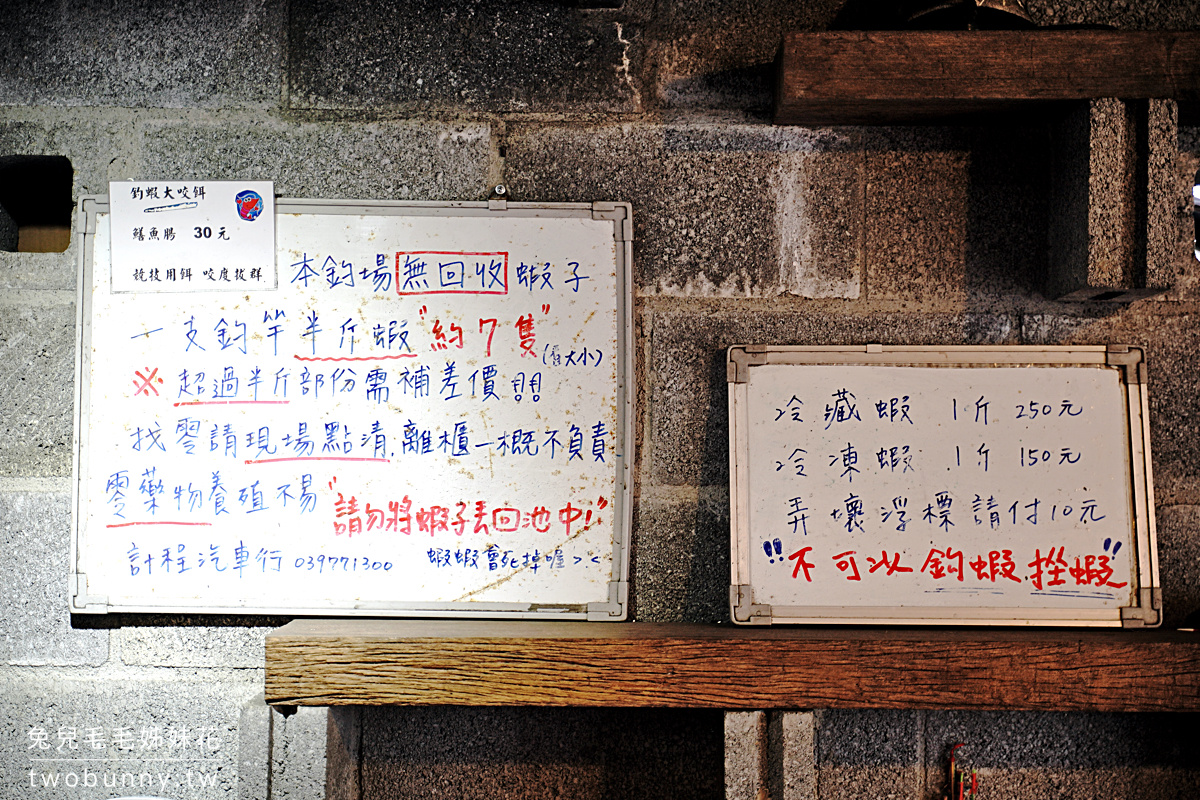 釣蝦大咬餌
鱔魚腸 30元
競技用餌 咬度拔群
本釣場無回收蝦子
一支釣竿半斤蝦"約7隻"(看大小)
※超過半斤部份需補差價!!
找零請現場點清,離櫃一概不負責
零藥物養殖不易"請勿將蝦子丟回池中!"
計程汽車行 039771300 蝦蝦會死掉喔><
冷藏蝦 1斤 250元
冷凍蝦 1斤 150元
弄壞浮標請付10元
"不可以釣蝦.挫蝦"
兔兒毛毛姊妹花
twobunny.tw